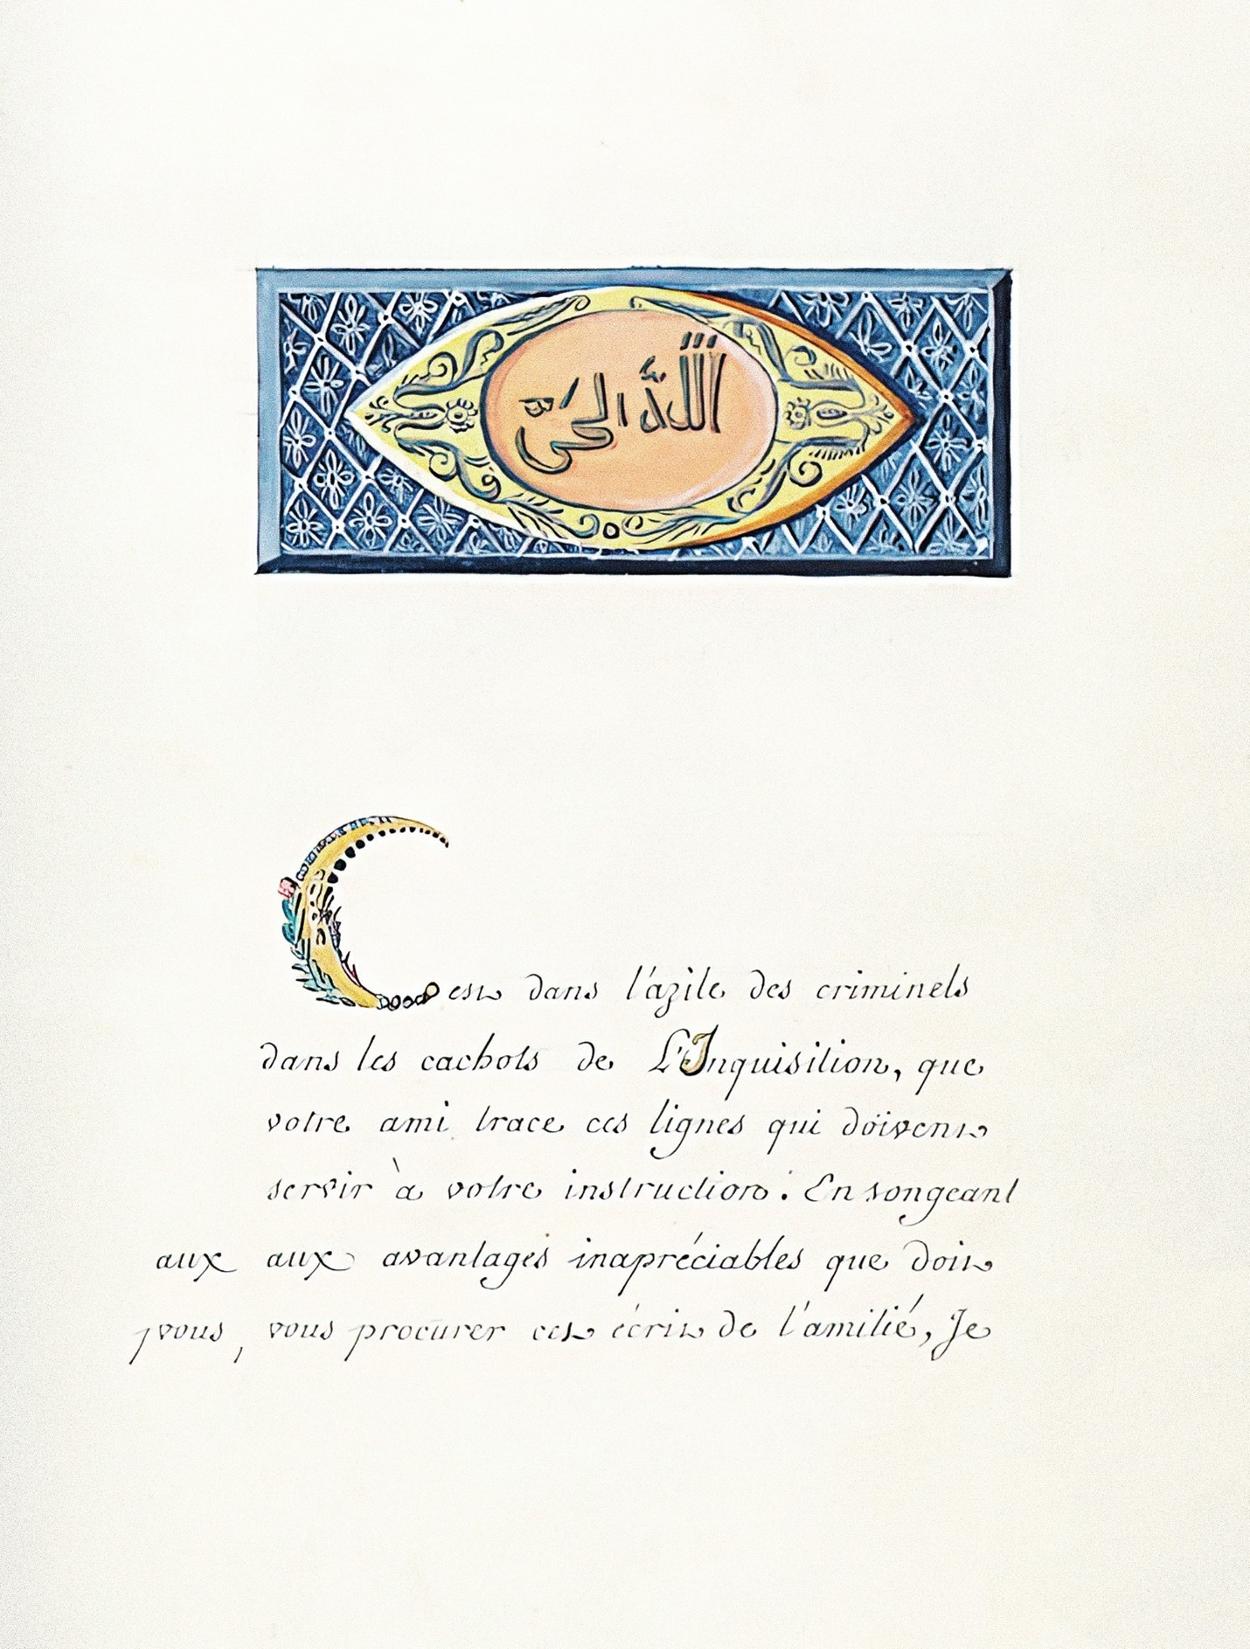 الله الحي
Cest dans l'azile des criminels
dans les cachots de L'Inquisition, que
votre ami trace ces lignes qui doivent
servir à votre instruction. En songeant
aux aux avantages inapréciables que doit
vous, vous procurer cet écrit de l'amitié, Je